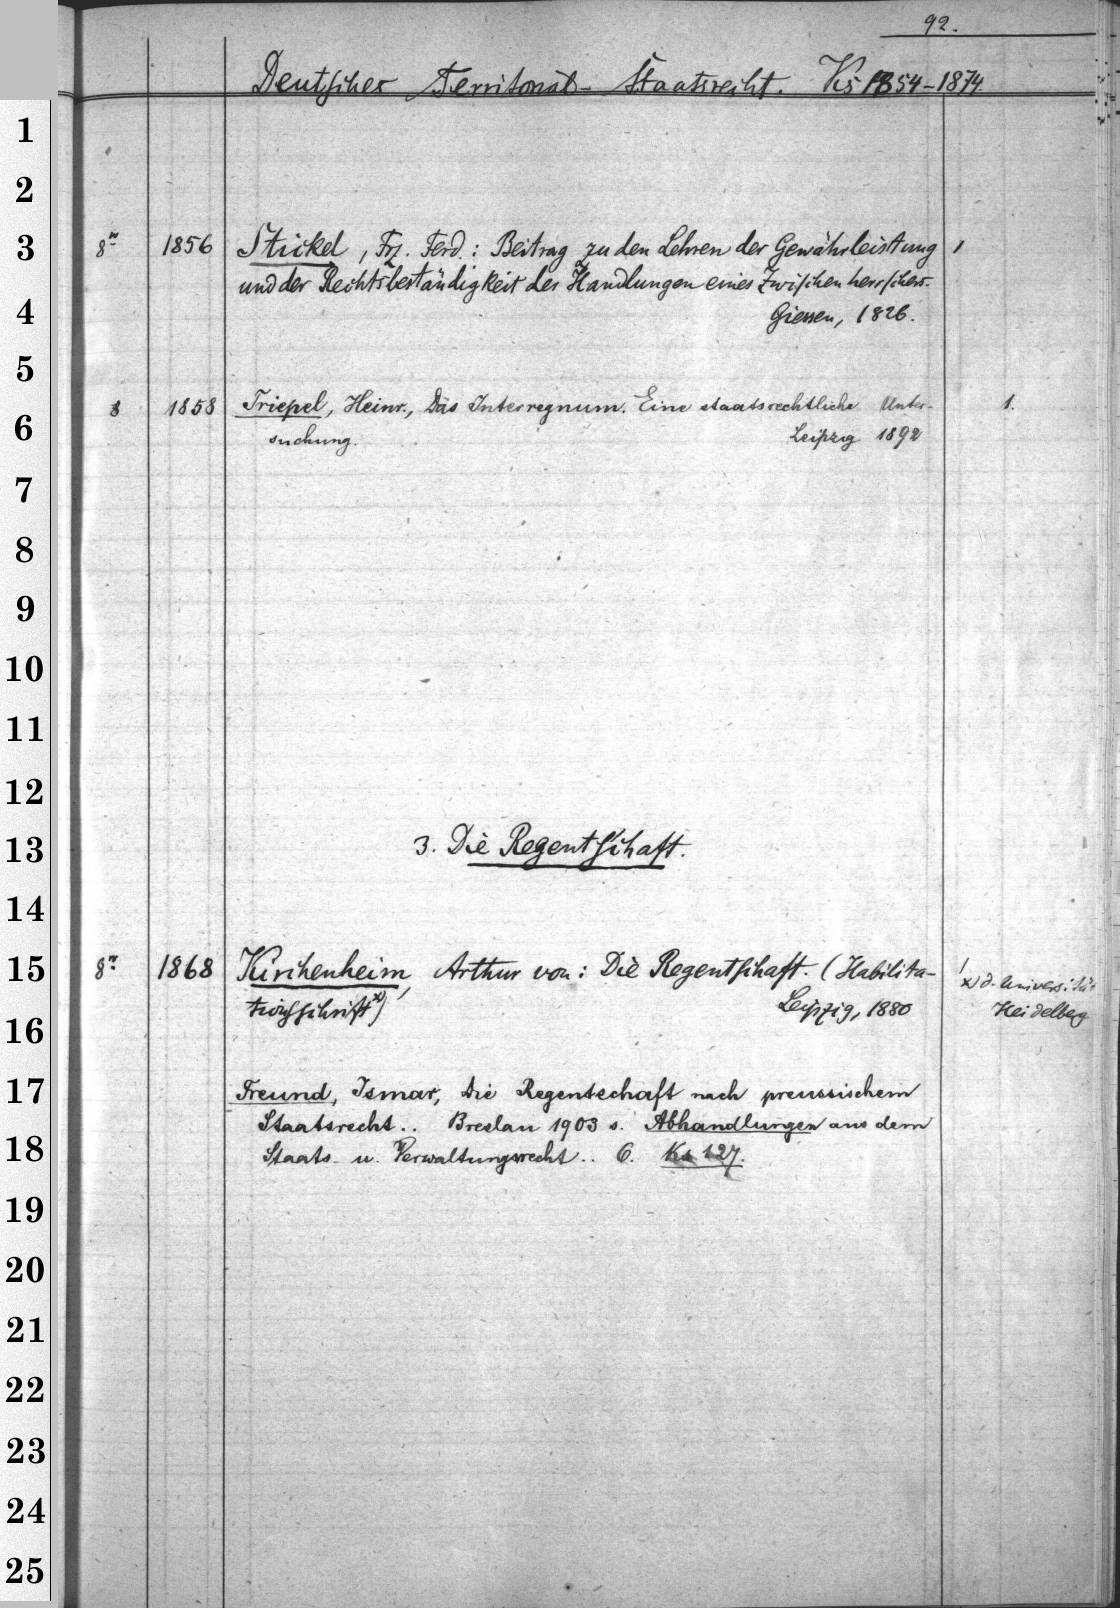 92.
Deutsches Territorial-Staatsrecht. Ks 1854-1874
1
2
3
8° 1856 Stickel, Frz. Ferd.: Beitrag zu den Lehren der Gewährleistung 1
und der Rechtsbeständigkeit der Handlungen eines Zwischenherrschers.
4
Giessen, 1826.
5
8 1858 Triepel, Heinr., Das Interregnum. Eine staatsrechtliche Unter- 1.
6
suchung. Leipzig 1892
7
8
9
10
11
12
13
3. Die Regentschaft.
14
15
8° 1868 Kirchenheim, Arthur von: Die Regentschaft. (Habilita- 1
x) d. Universität
tionsschrift x)) Leipzig, 1880 Heidelberg
16
17
Freund, Ismar, Die Regentschaft nach preussischem
Staatsrecht.. Breslau 1903 s. Abhandlungen aus dem
18
Staats- u. Verwaltungsrecht.. 6. Ks 127.
19
20
21
22
23
24
25